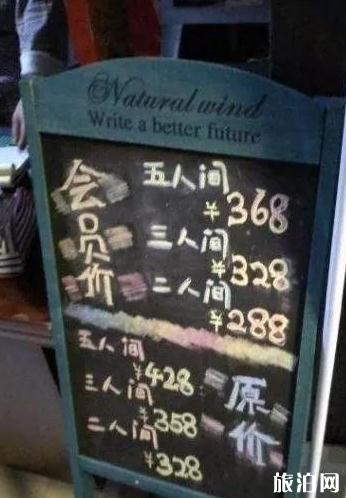 Natural wind
Write a better future
会员价
五人间
¥368
三人间
¥328
二人间
¥288
五人间
¥428
三人间
¥358
二人间
¥328
原价
旅泊网